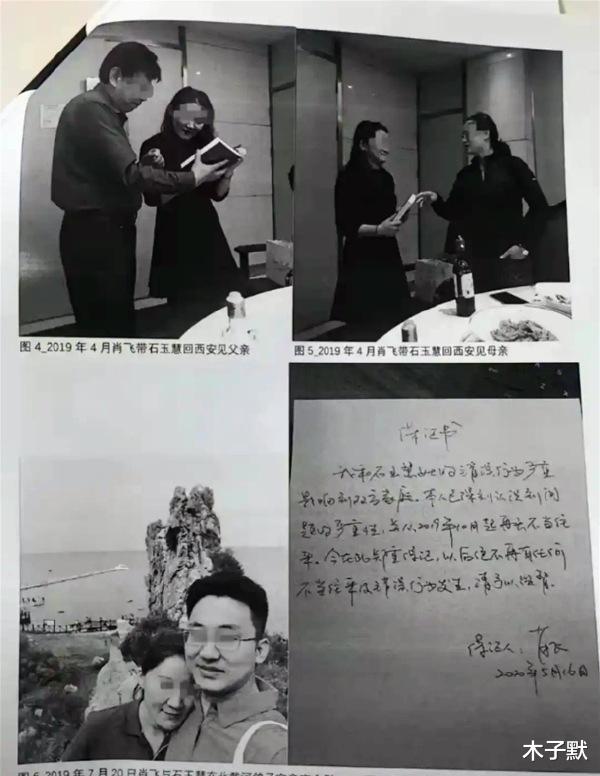 图 4_2019 年 4 月肖飞带石玉慧回西安见父亲
图 5_2019 年 4 月肖飞带石玉慧回西安见母亲
保证书
我和石玉慧女士的错误行为严重
影响到双方家庭。本人已深刻认识到问
题的严重性，并从2019年10月起再无不当往
来。今在此郑重保证，以后绝不再有任何
不当往来及错误行为发生，请予以监督。
保证人：肖飞
2020年5月16日
图 6_2019 年 7 月 20 日肖飞与石玉慧在北戴河鸽子窝
木子默